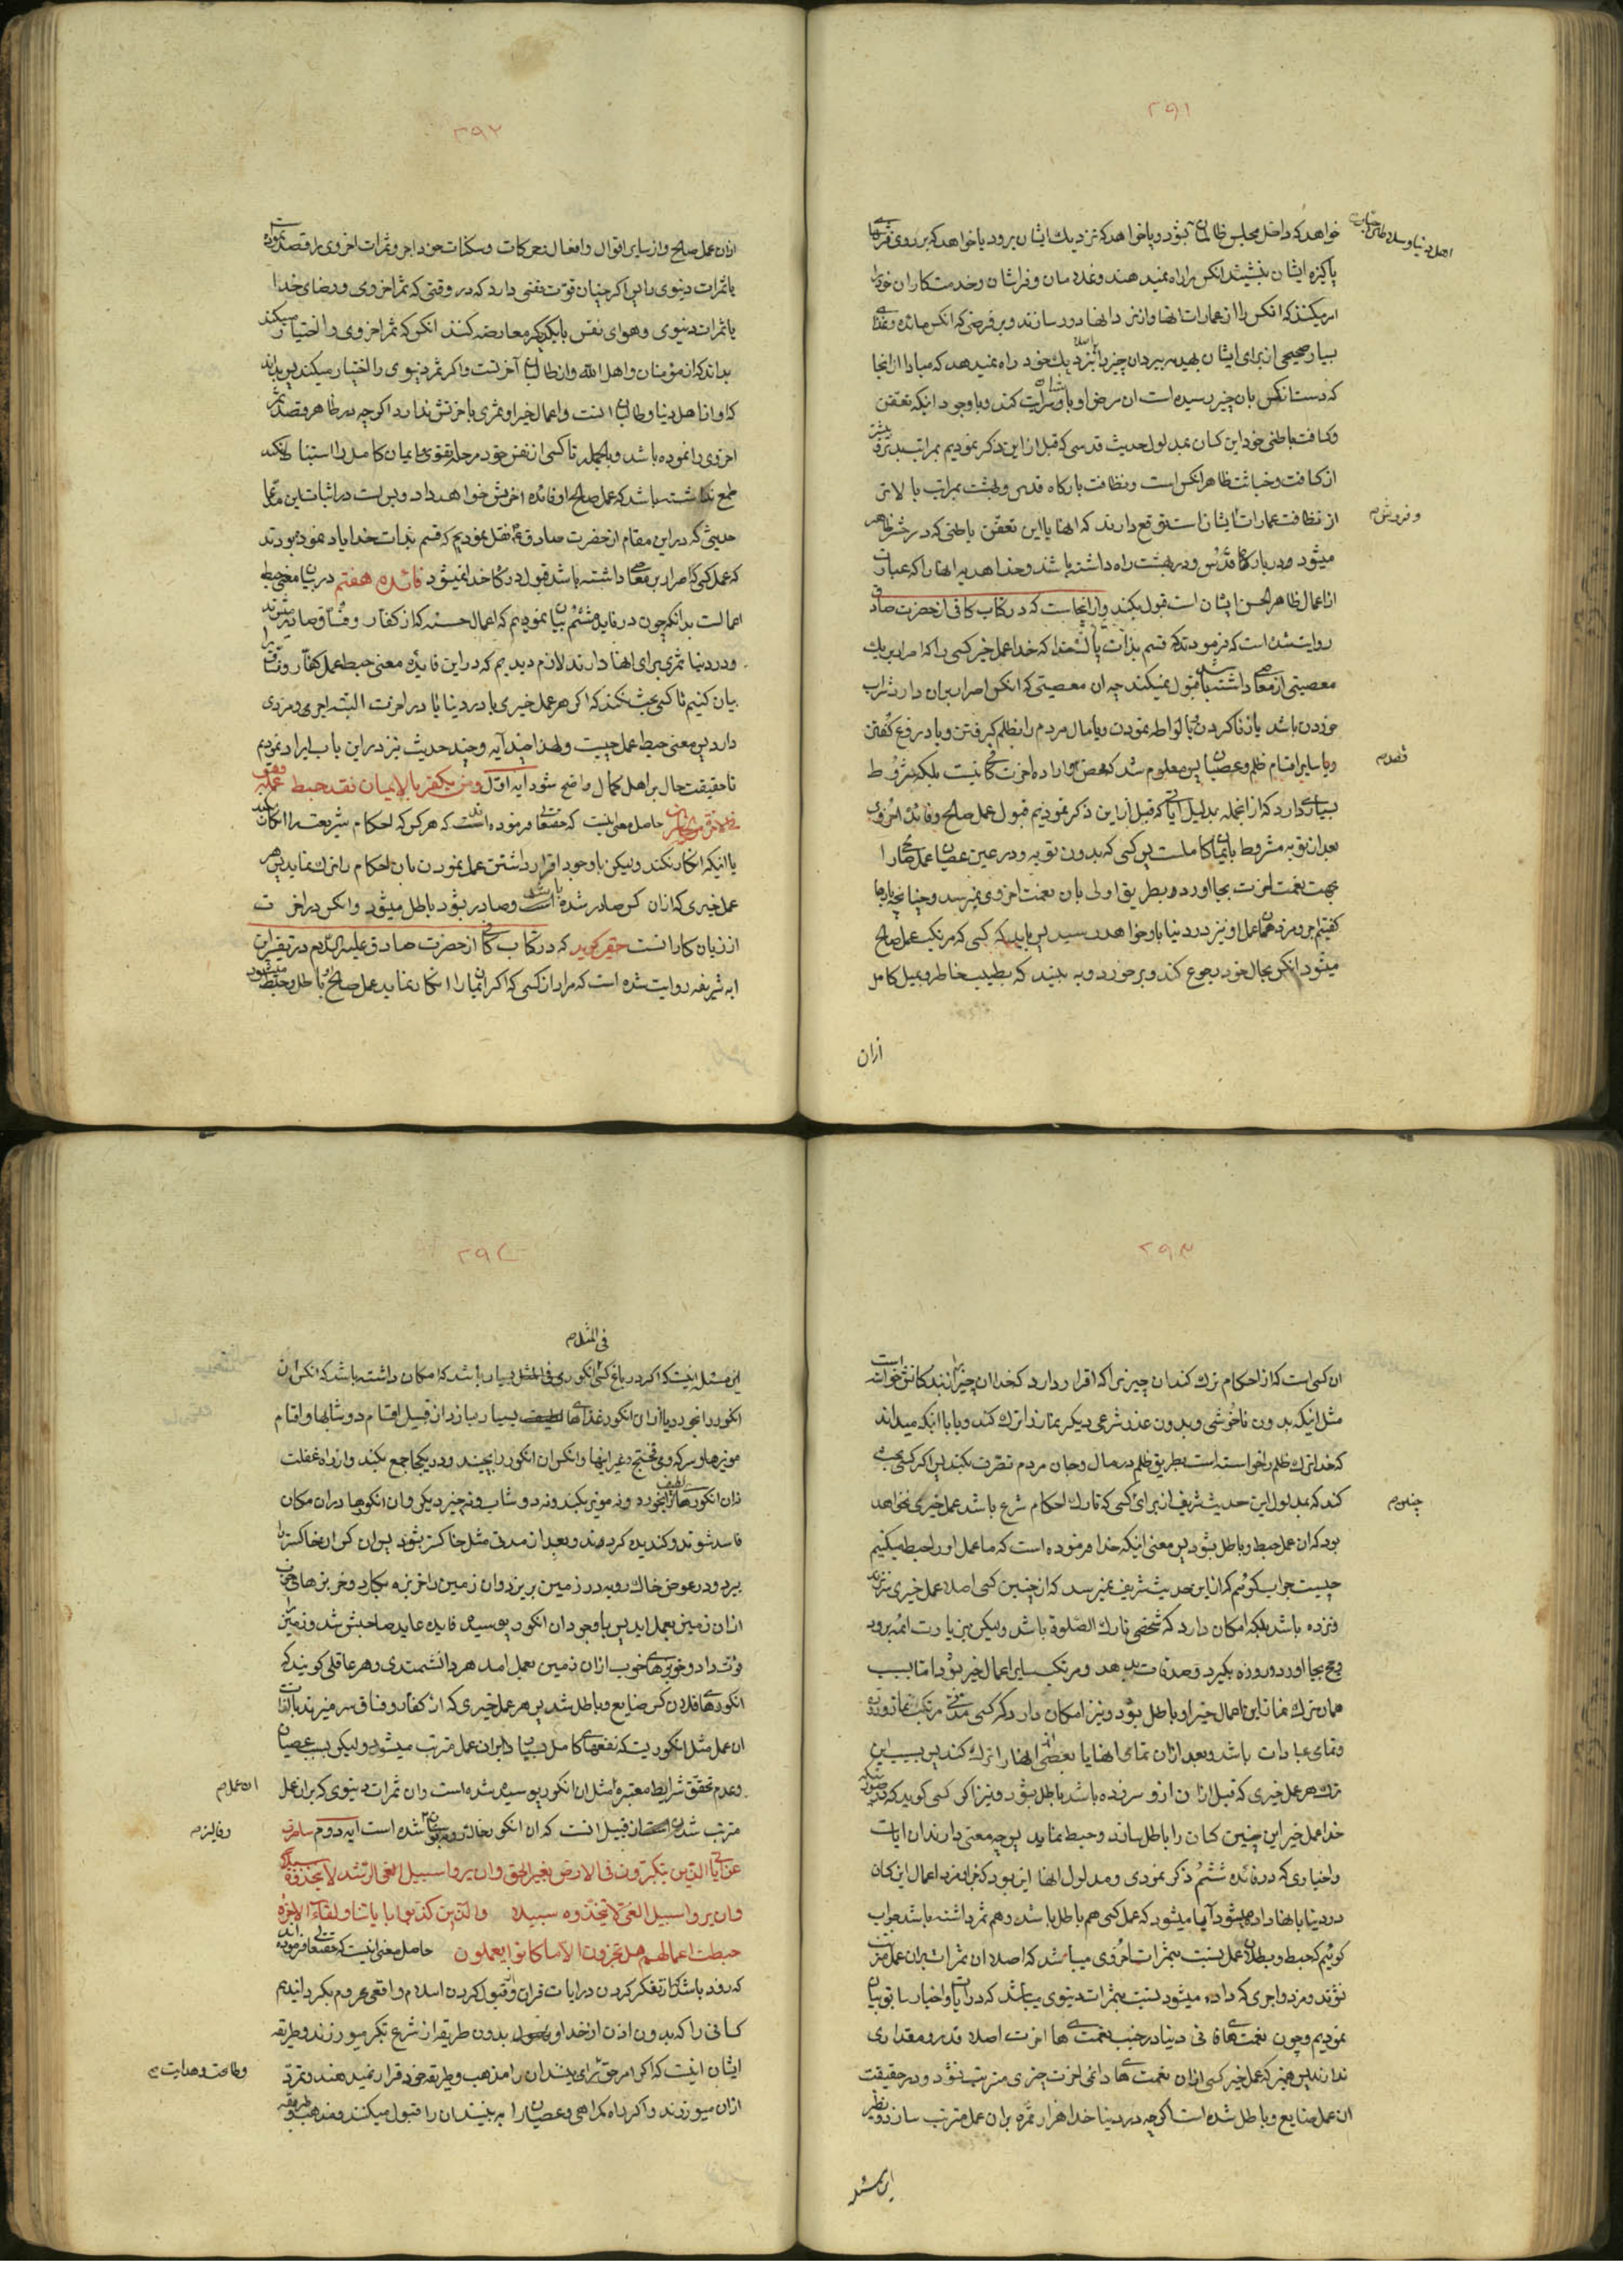 ۲۹۱
خواهد که داخل مجلس ظالمان بشود و یا خواهد که نزدیك ایشان برود یا خواهد که بر روی فرشهای
پاکیزه ایشان بنشیند انکس را راه نمیدهند و غلامان و فراشان و خدمتکاران خود را
امر میکنند که انکس را از عمارات انها و از نزد انها دور سازند و بر فرضی که انکس مائده و غذای
بسیار صحیحی از برای ایشان بهدیه ببرد ان چیز را نزدیك خود راه نمیدهد که مبادا از انجا
که دست انکس بان چیز رسیده است ان مرض او باو سرایت کند و باوجود اینکه تعفن
و کثافت باطنی خود این کسان بمدلول حدیث قدسی که قبل از این ذکر نمودیم بمراتب بدتر و بیشتر
از کثافت و خباثت ظاهر انکس است و نظافت بارگاه قدس و بهشت بمراتب بالاتر
از نظافت عمارات ایشان است توقع دارند که انها با این تعفن باطنی که در حشر ظاهر
میشود در بارگاه قدس و در بهشت راه داشته باشند و خدا هدیه انها را که عبارت
از اعمال ظاهر الحسن ایشان است قبول بکند و از انجاست که در کتاب کافی از حضرت صادق
روایت شده است که فرمودند که قسم بذات پاك خدا که خدا عمل خیر کسی را که اصرار بر یك
معصیتی از معاصی داشته باشد قبول نمیکند چه ان معصیتی که انکس اصرار بران دارد شراب
خوردن باشد یا زنا کردن یا لواطه نمودن و یا مال مردم را بظلم گرفتن و یا دروغ گفتن
و یا سایر اقسام ظلم و عصیان پس معلوم شد که محض اراده اخرت کافی نیست بلکه شروط
بسیاری دارد که از انجمله بدلیل آیاتی که قبل از این ذکر نمودیم قبول عمل صالح و فائده اخروی
بعد از توبه مشروط بایمان کامل است پس کسی که بدون توبه و در عین عصیان عمل صالح را
بجهت نعمت اخرت بجا اورد و بطریق اولی بان نعمت اخروی نمیرسد و چنانچه بارها
گفتیم اجر و مزد همان عمل او نیز در دنیا باو خواهد رسید پس باید که کسی که مرتکب عمل صالح
میشود انکس بحال خود رجوع کند و بر خورد و به بیند که بطیب خاطر و بمیل کامل
ازان
و فروش م
قصد م
۲۹۲
ازان عمل صالح و از سایر اقوال و افعال و حرکات و سکنات خود اجر و ثمرات اخروی را قصد نموده است
یا ثمرات دنیوی را پس اگر چنان قوت نفسی دارد که در وقتی که ثمر اخروی و رضای خدا
با ثمرات دنیوی و هوای نفس با یکدیگر معارضه کنند انکس که ثمر اخروی را اختیار میکند
بداند که از مؤمنان و اهل الله و از طالبان آخرتست و اگر ثمر دنیوی را اختیار میکند پس بداند
که او از اهل دنیا و طالبان انست و اعمال خیر او ثمری باخرتش ندارد اگر چه در ظاهر قصد ثمر
اخروی را نموده باشد و بالجمله تا کسی از نفس خود مرحله تقوی و ایمان کامل را استنباط نکند
طمع نداشته باشد که عمل صالح او فائده اخرتش خواهد داد و بس است در اثبات این مدعا
حدیثی که در این مقام از حضرت صادق ع نقل نمودیم که قسم بذات خدا یاد نموده بودند
که عمل کسی که اصرار بر معاصی داشته باشد قبول درگاه خدا نمیشود فائده هفتم در بیان معنی حبط
اعمالست بدانکه چون در فائده ششم بیان نمودیم که اعمال حسنه که از کفار و فساق صادر میشوند
و در دنیا ثمری برای انها دارند لازم دیدیم که در این فائده معنی حبط عمل کفار و فساق را
بیان کنیم تا کسی بحث نکند که اگر هر عمل خیری یا در دنیا یا در اخرت البته اجری و مزدی
دارد پس معنی حبط عمل چیست و لهذا چند آیه و چند حدیث نیز در این باب ایراد نمودیم
تا حقیقت حال بر اهل کمال واضح شود ایه اول ومن یکفر بالایمان فقد حبط عمله وهو
فی الاخرة من الخاسرین حاصل معنی اینست که حقتعالی فرموده است که هر کس که احکام شریعت را انکار کند
یا انیکه انکار نکند ولیکن باوجود اقرار داشتن عمل نمودن بان احکام را ترك نماید پس هر
عمل خیری که ازان کس صادر شده باشد و صادر بشود باطل میشود و انکس در اخرت
از زیان کارانست حقیر گوید که در کتاب کافی از حضرت صادق علیه السلام در تفسیر این
ایه شریفه روایت شده است که مراد از کسی که اگر ایمان را انکار نماید عمل صالح او باطل و حبط میشود
۲۹۳
ان کسی است که از احکام ترك کند ان چیزی را که اقرار دارد که خدا ان چیز را از بندگانش خواسته است
مثل انیکه بدون ناخوشی و بدون عذر شرعی دیگر نماز را ترك کند و یا با انکه میداند
که خدا ترك ظلم را خواسته است بطریق ظلم در مال و جان مردم تصرف بکند پس اگر کسی بحثی
کند که بمدلول این حدیث شریف از برای کسی که تارك احکام شرع باشد عمل خیری نخواهد
بود که ان عمل حبط و باطل بشود پس معنی اینکه خدا فرموده است که ما عمل او را حبط میکنیم
چیست جواب گوئیم که از این حدیث شریف نمیرسد که از چنین کسی اصلا عمل خیری سر نزند
و نزده باشد بلکه امکان دارد که شخصی تارك الصلوة باشد ولیکن بزیارت ائمه برود
و حج بجا اورد و روزه بگیرد و صدقات بدهد و مرتکب سایر اعمال خیر بشود اما بسبب
همان ترك نماز این اعمال خیر او باطل بشود و نیز امکان دارد که کسی مدتی مرتکب نماز و روزه
و تمامی عبادات باشد و بعد ازان تمامی انها یا بعضی از انها را ترك کند پس بسبب این
ترك هر عمل خیری که قبل ازان ازو سر زده باشد باطل بشود و نیز اگر کسی گوید که در صورتیکه
خدا عمل خیر این چنین کسان را باطل سازد و حبط نماید پس چه معنی دارند ان ایات
و اخباری که در فائده ششم ذکر نمودی و مدلول انها این بود که اجر و مزد اعمال این کسان
در دنیا بانها داده میشود آیا میشود که عمل کسی هم باطل باشد و هم ثمر داشته باشد جواب
گوئیم که حبط و بطلان عمل نسبت بثمرات اخروی میباشد که اصلا ان ثمرات بران عمل مترتب
نشوند و مزد و اجری که داده میشود نسبت بثمرات دنیوی میباشد که در آیات و اخبار سابق بیان
نمودیم و چون نعمتهای فانی دنیا در جنب نعمتهای اخرت اصلا قدر و مقداری
ندارند پس همینکه عمل خیر کسی ازان نعمتهای دائمی اخرت چیزی مترتب نشود در حقیقت
ان عمل ضایع و باطل شده است اگر چه در دنیا خدا هزار ثمره بران عمل مترتب سازد و نظیر
این مسئله
چنین م
۲۹۴
فی المثل م
این مسئله اینست که اگر در باغ کسی انگوری بسیار باشد که امکان داشته باشد که انکس ان
انگور را بخورد یا ازان انگور غذاهای لطیف بسیار بسازد از قبیل اقسام دوشابها و اقسام
مویزها و سرکه و می فختج و غیر اینها و انکس ان انگور را بچیند و در یکجا جمع بکند و از راه غفلت
نه ان انگورهای لطیف را بخورد و نه مویز بکند و نه دوشاب و نه چیز دیگر و ان انگورها در ان مکان
فاسد شوند و گندیده گردند و بعد از مدتی مثل خاکستر بشود پس ان کس ان خاکستر را
ببرد و در عوض خاك روبه در زمین بریزد و ان زمین را خربزه بکارد و خربزهای خوب
ازان زمین بعمل اید پس باوجود ان انگور پوسیده فایده عاید صاحبش شد و زمین را
قوت داد و خربزهای خوب ازان زمین بعمل امد هر دانشمندی و هر عاقلی گویند که
انگورهای فلان کس ضایع و باطل شد پس هر عمل خیری که از کفار و فساق سر میزند
ان عمل مثل انگوریست که نفعهای کامل بران عمل مترتب میشود ولیکن بسبب عصیان
و عدم تحقق شرایط معتبره مثل ان انگور پوسیده شده است و ان ثمرات دنیوی که بران عمل
مترتب شدن از قبیل انست که ان انگور خاك شده است ایه دوم ساصرف
عن آیاتی الذین یتکبرون فی الارض بغیر الحق وان یروا سبیل الرشد لا یتخذوه سبیلا
وان یروا سبیل الغی یتخذوه سبیلا والذین کذبوا بایاتنا ولقاء الاخرة
حبطت اعمالهم هل یجزون الا ما کانوا یعملون حاصل معنی اینست که حقتعالی فرموده اند
که زود باشد که از تفکر کردن در ایات قران و از قبول کردن اسلام واقعی محروم بگردانیدم
کسانی را که بدون اذن از خدا و بدون طریقه از شرع تکبر میورزند و طریقه
ایشان اینست که اگر امر حق را به بینند ان را مذهب و طریقه خود قرار نمیدهند و تمرد
ازان میورزند و اگر راه گمراهی و عصیان را به بینند ان را قبول میکنند و مذهب و طریقه
ان عمل م
و فالیز م
و طاعت و هدایت